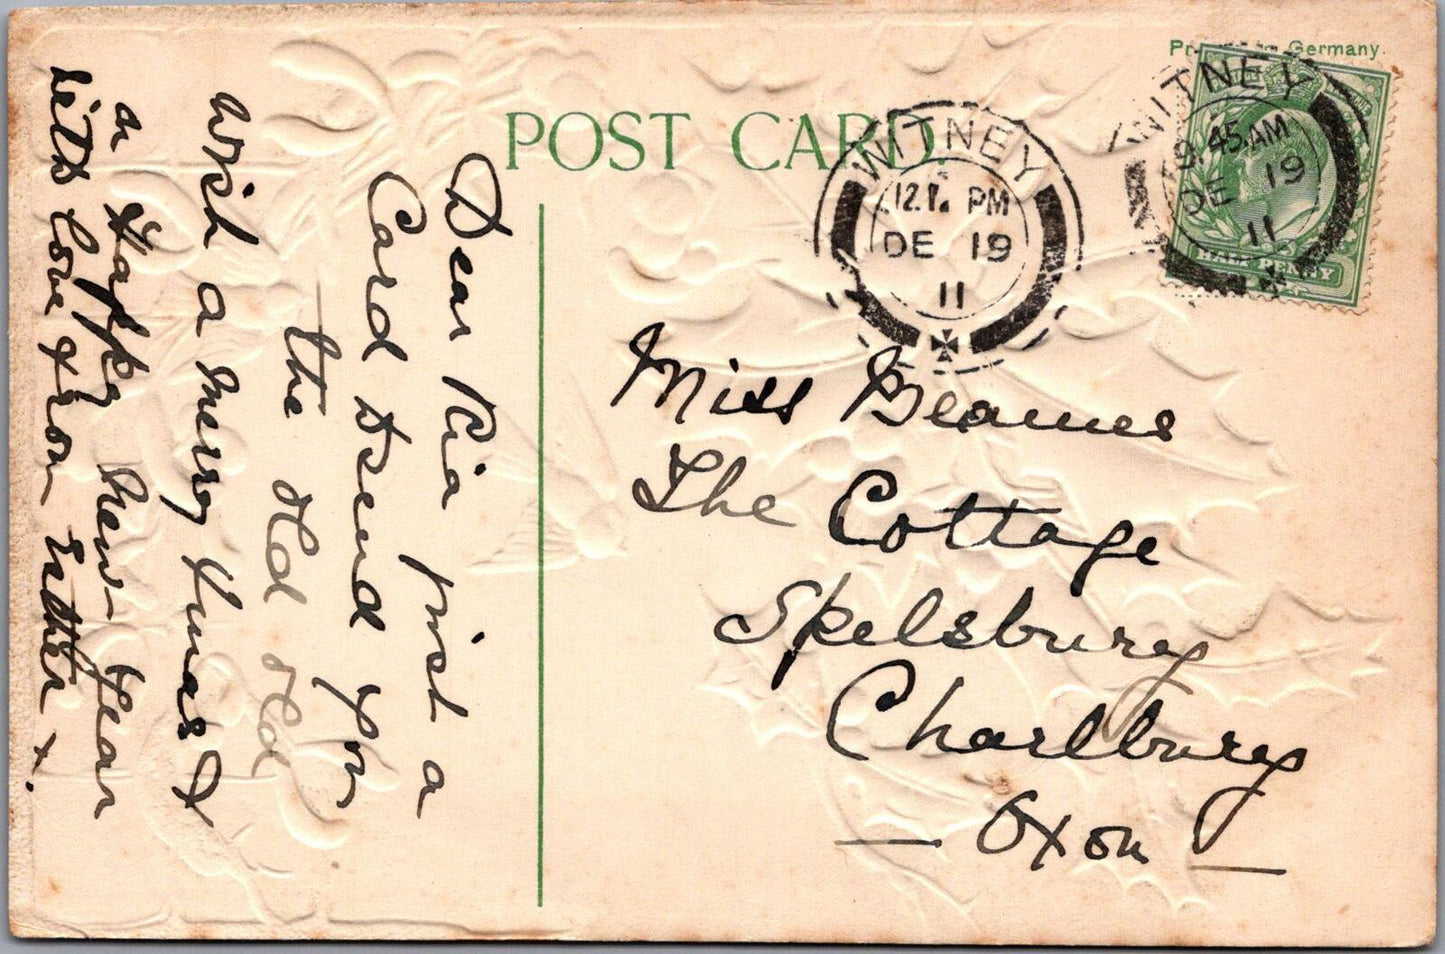 POST CARD.
Printed in Germany.
WITNEY
12.15 PM
DE 19
11
WITNEY
9.45 AM
DE 19
11
HALF PENNY
Miss Beames
The Cottage
Spelsbury
Charlbury
— Oxon —
Dear Ria just a
Card to send you
the Old Old
wish a Merry Xmas &
a Happy New-Year
with love from x.